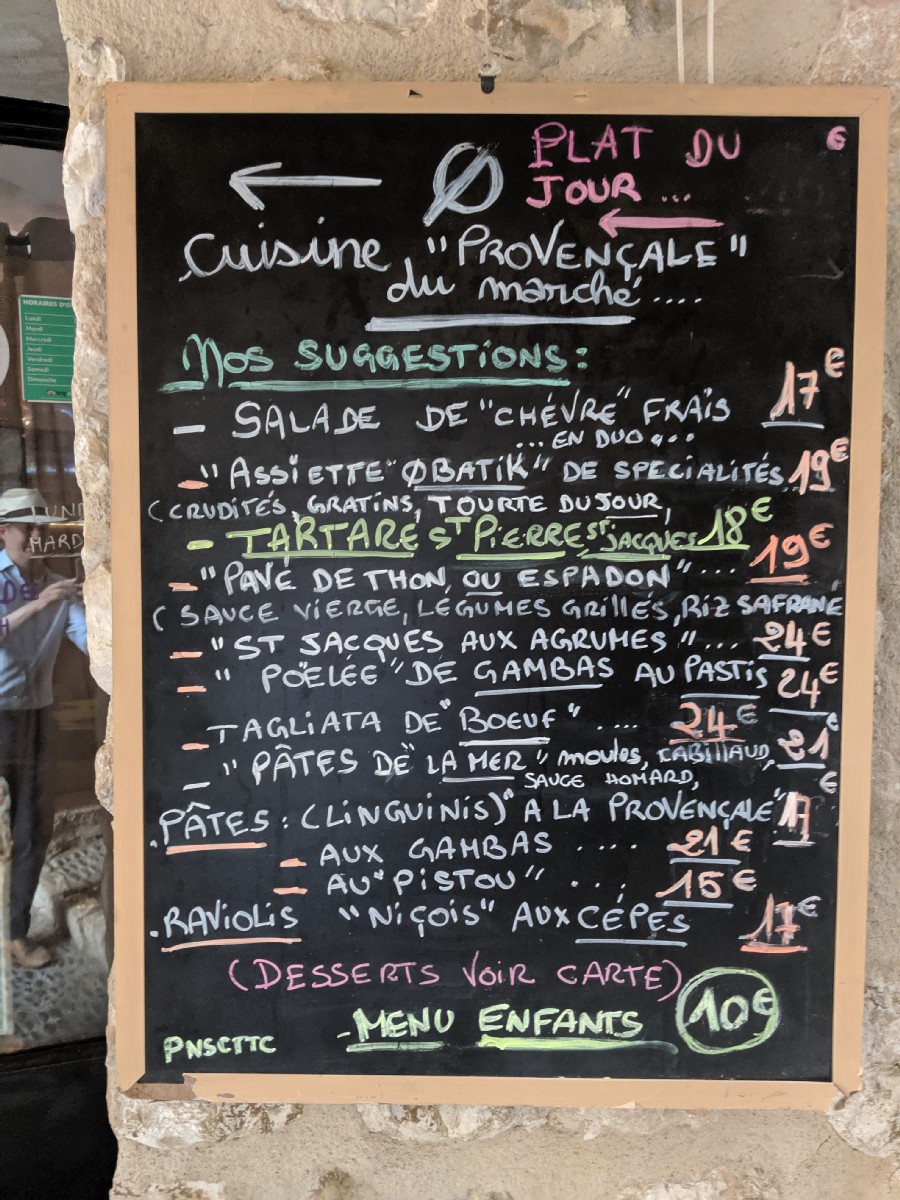 PLAT DU €
Ø JOUR ...
Cuisine "PROVENÇALE"
du marché ....
NOS SUGGESTIONS:
- SALADE DE "CHÉVRE" FRAIS 17€
... EN DUO ...
- "ASSIETTE" ØBATIK" DE SPECIALITÉS 19€
(CRUDITÉS, GRATINS, TOURTE DU JOUR,
- TARTARE ST PIERRE ST JACQUES 18€
- "PAVÉ DE THON, OU ESPADON" ... 19€
(SAUCE VIERGE, LÉGUMES GRILLÉS, RIZ SAFRANÉ
- "ST JACQUES AUX AGRUMES" ... 24€
- "POËLÉE" DE GAMBAS AU PASTIS 24€
- TAGLIATA DE "BOEUF" .... 24€
- "PÂTES DE" LA MER" moules, CABILLAUD, 21€
SAUCE HOMARD,
.PÂTES: (LINGUINIS)" A LA PROVENÇALE" 17€
- AUX GAMBAS ..... 21€
- AU "PISTOU" ... 15€
.RAVIOLIS "NIÇOIS" AUX CÉPES 17€
(DESSERTS VOIR CARTE)
- MENU ENFANTS 10€
PNSCTTC
HORAIRES D'O
Lundi
Mardi
Mercredi
Jeudi
Vendredi
Samedi
Dimanche
LUND
MARD
DE